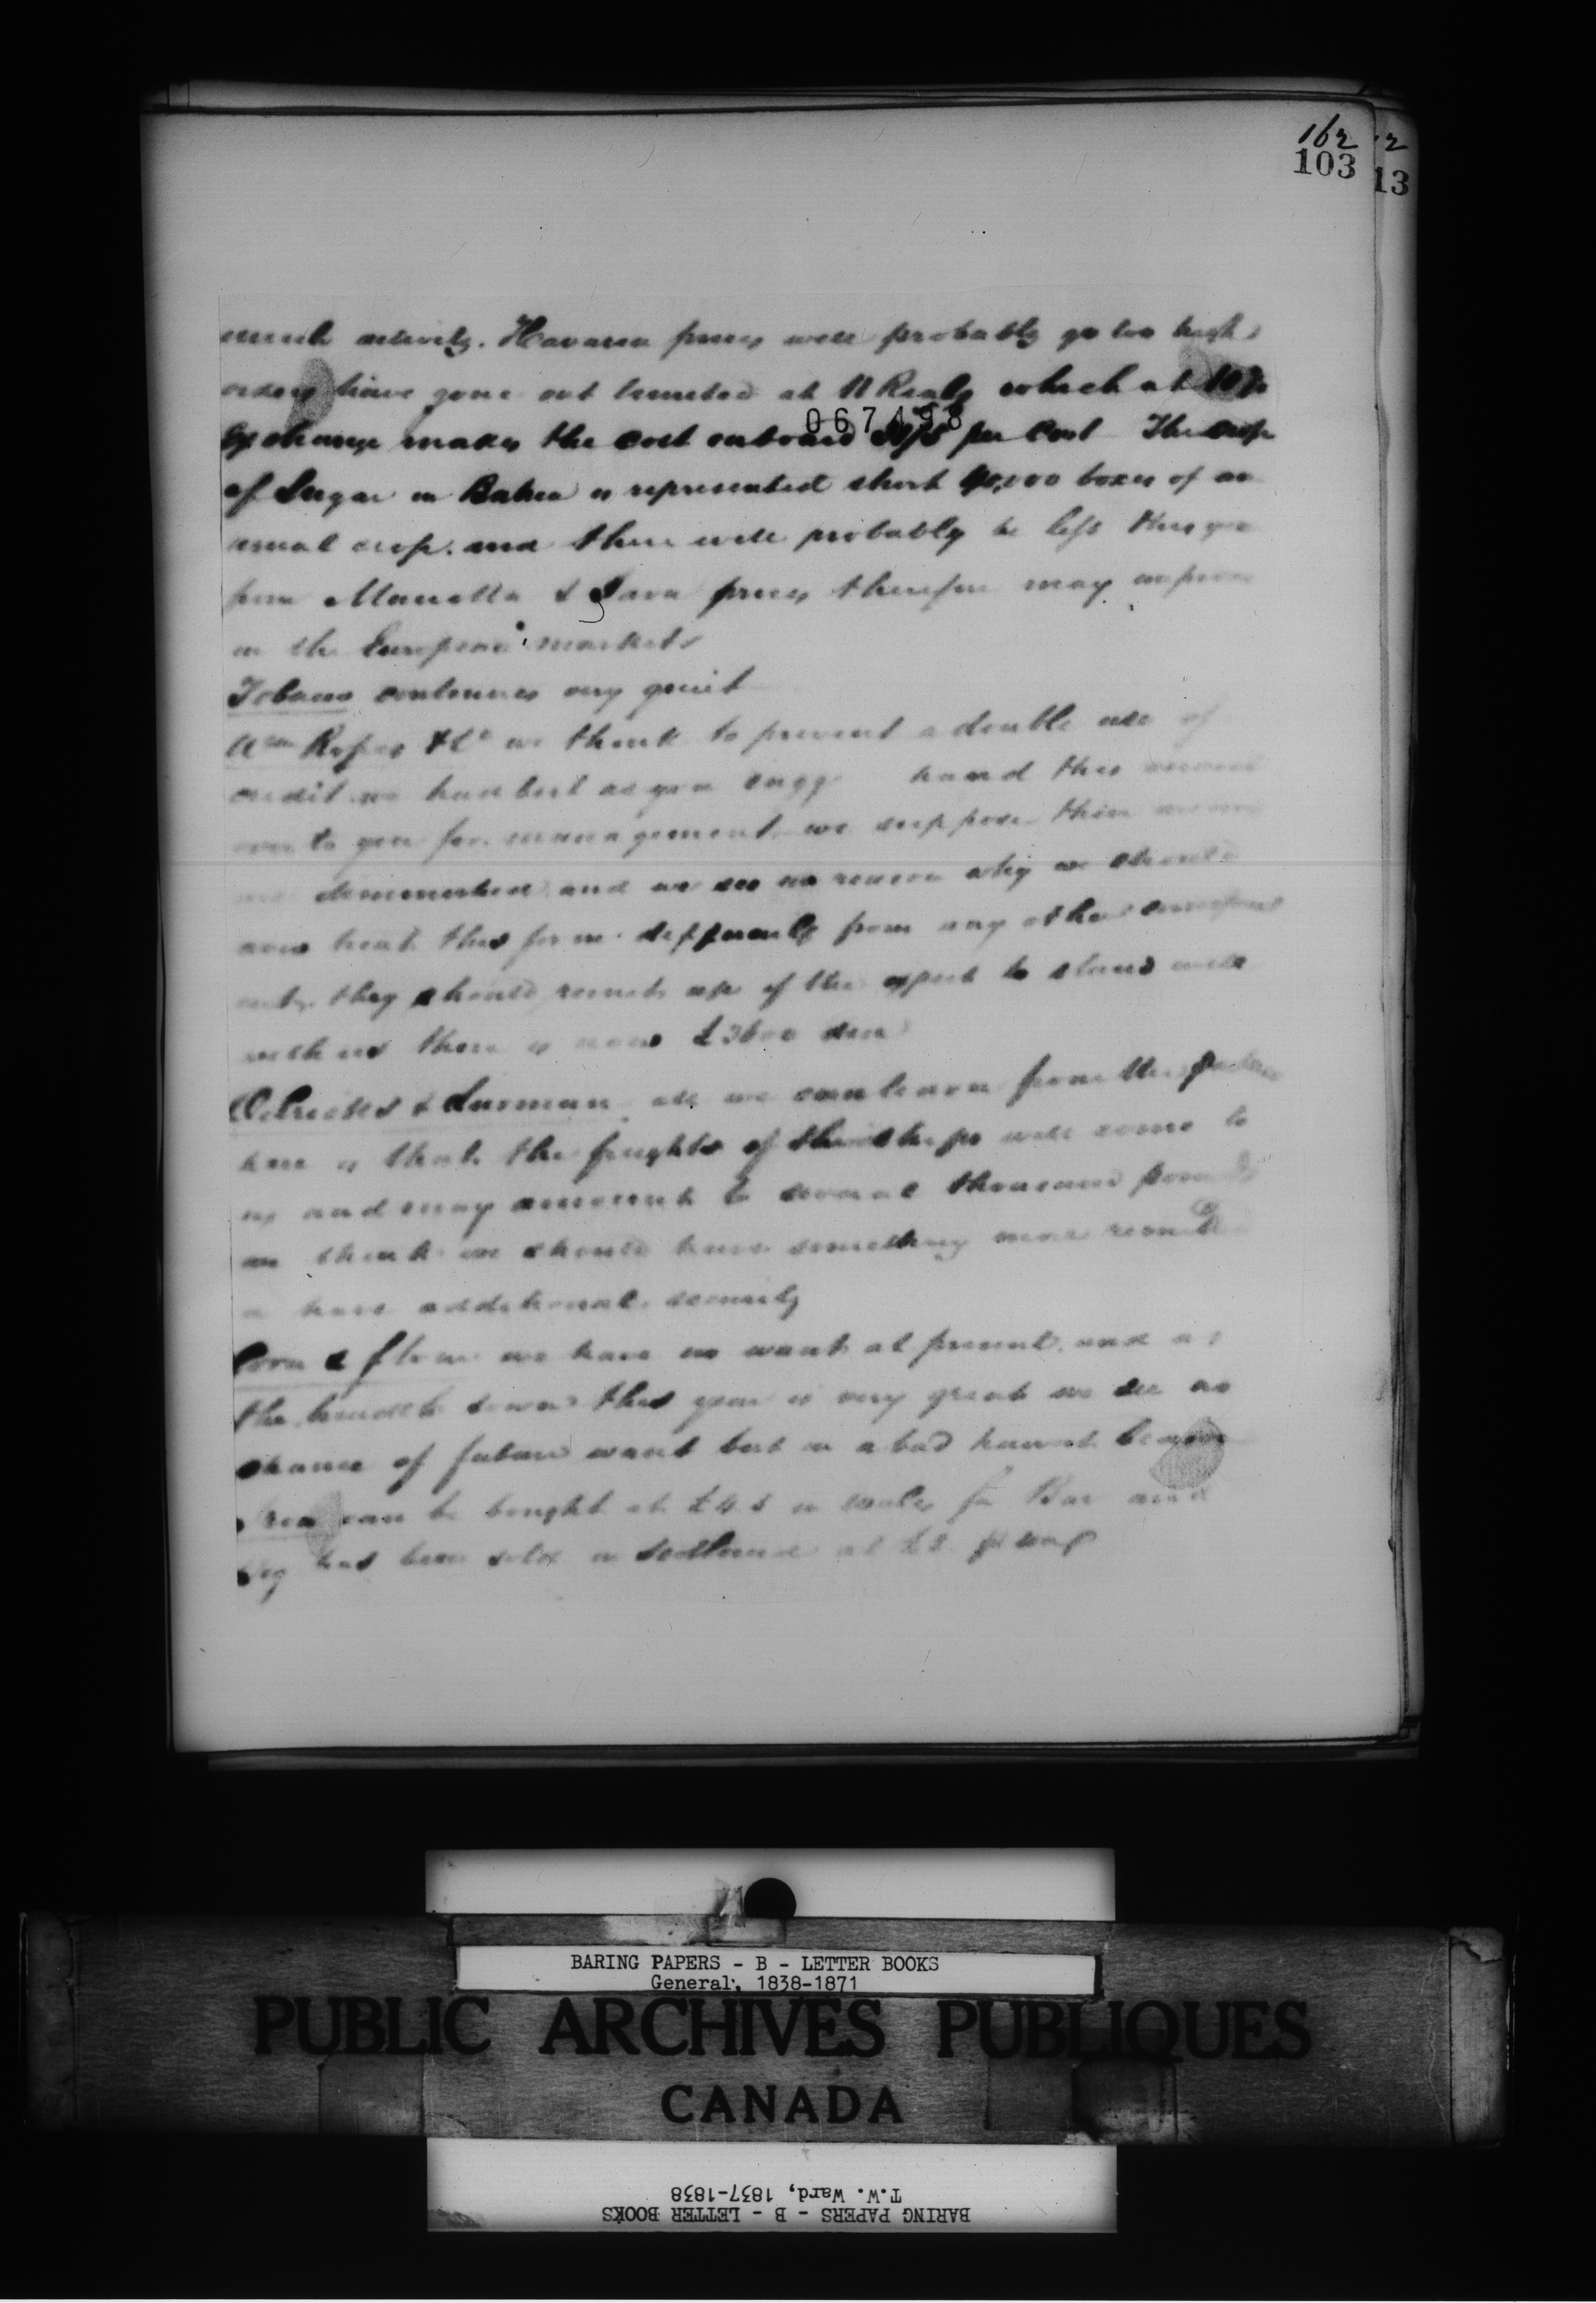 162
103
13
much activity. Havana prices will probably go too high
orders have gone out limited at 11 Reals which at 10 p
Exchange makes the cost onboard per Cwt The crop
067498
of Sugar in Bahia is represented short 40,000 boxes of an
usual crop. and there will probably be less this year
from Manilla & Java prices therefore may improve
in the European markets
Tobacco continues very quiet
Wm Ropes & Co we think to prevent a double use of
credit we had best as you sugg hand this account
over to you for management. we suppose their
diminished and we see no reason why we should
now treat this firm differently from any other
they should remit if they expect to stand well
with us there is now £3600 due
Oelrichs & Lurman all we can learn from the
here is that the freights of the ships will come to
us and may amount to several thousand pounds
we think we should have something more
or have additional security
Corn & flour we have no want at present. and as
the breadth sown this year is very great we see no
chance of future want but in a bad harvest
Iron can be bought at £4.5 in Wales for Bar and
Pig has been sold in Scotland at £2.
BARING PAPERS - B - LETTER BOOKS
General, 1838-1871
PUBLIC ARCHIVES PUBLIQUES
CANADA
BARING PAPERS - B - LETTER BOOKS
T.W. Ward, 1837-1838